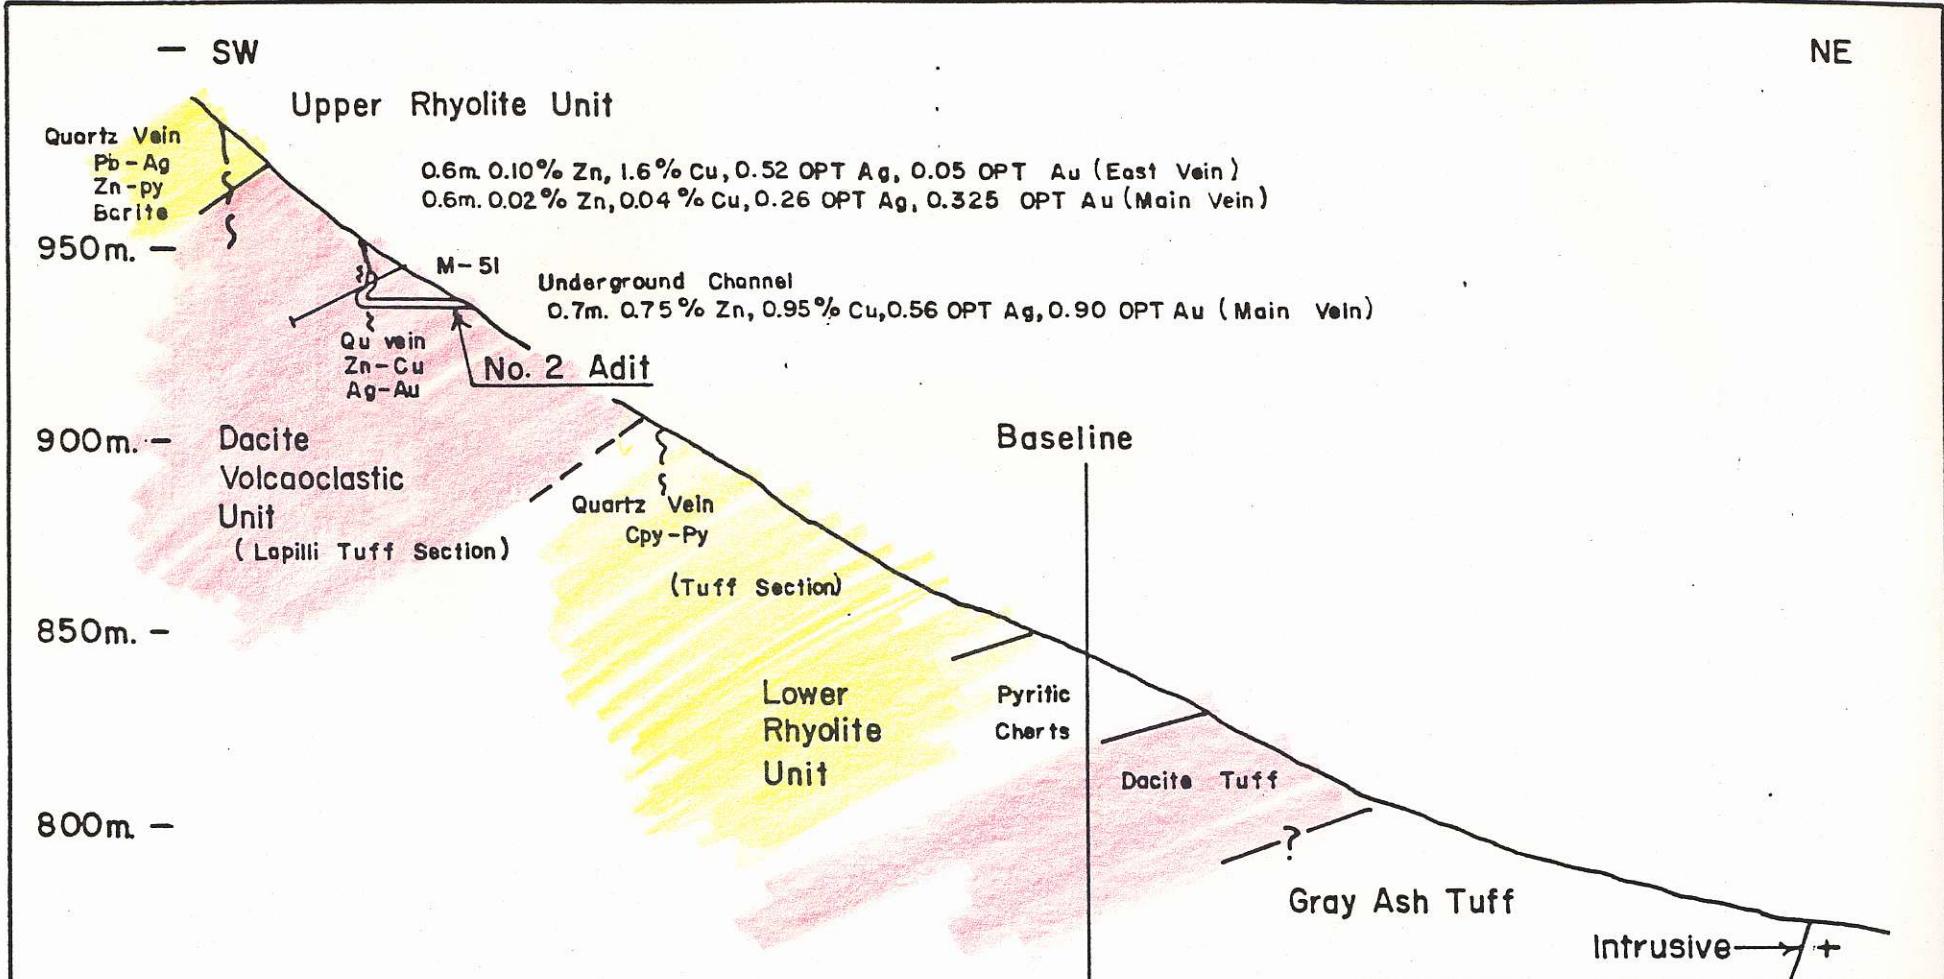 — SW
NE
Upper Rhyolite Unit
Quartz Vein
Pb-Ag
Zn-py
Barite
0.6m. 0.10% Zn, 1.6% Cu, 0.52 OPT Ag, 0.05 OPT Au (East Vein)
0.6m. 0.02% Zn, 0.04% Cu, 0.26 OPT Ag, 0.325 OPT Au (Main Vein)
950m. —
M-51
Underground Channel
0.7m. 0.75% Zn, 0.95% Cu, 0.56 OPT Ag, 0.90 OPT Au (Main Vein)
Qu vein
Zn-Cu
Ag-Au
No. 2 Adit
900m. —
Dacite
Volcaoclastic
Unit
(Lapilli Tuff Section)
Baseline
Quartz Vein
Cpy-Py
(Tuff Section)
850m. —
Lower
Rhyolite
Unit
Pyritic
Cherts
Dacite Tuff
800m —
?
Gray Ash Tuff
Intrusive
+